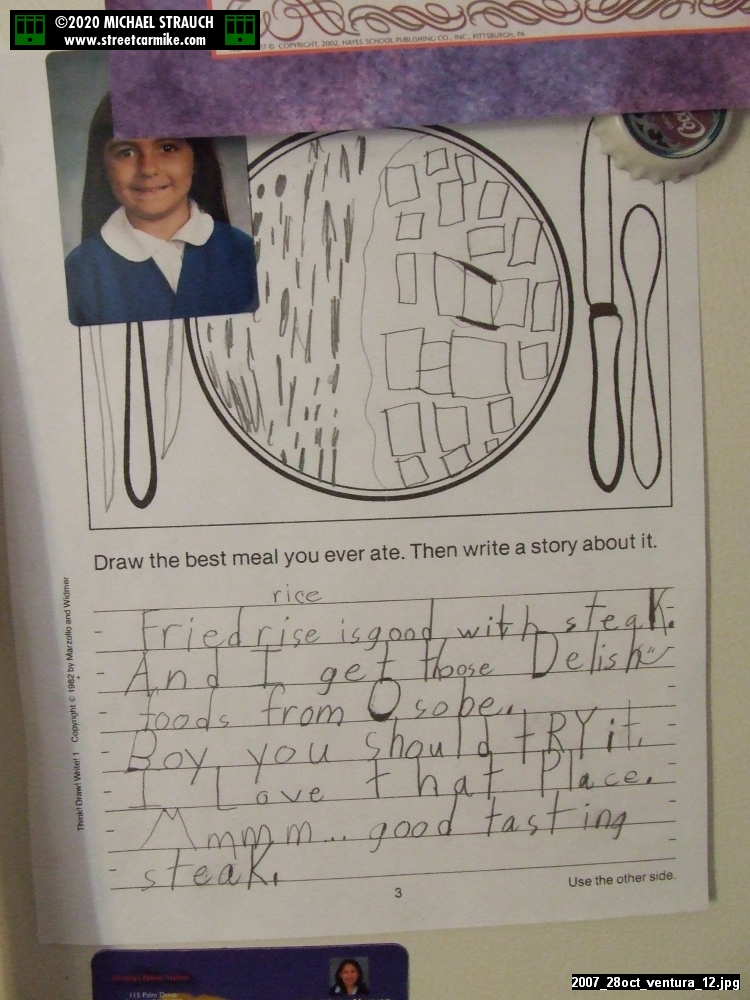 ©2020 MICHAEL STRAUCH
www.streetcarmike.com
© COPYRIGHT, 2002, HAYES SCHOOL PUBLISHING CO., INC., PITTSBURGH, PA
Draw the best meal you ever ate. Then write a story about it.
rice
Fried rise is good with steak.
And I get those Delish
foods from Osobe.
Boy, you should tRY it.
I Love that Place.
Mmmm... good tasting
steak.
Use the other side.
3
Think! Draw! Write! 1 Copyright © 1982 by Marzollo and Widmer
115 Palm Drive
2007_28oct_ventura_12.jpg